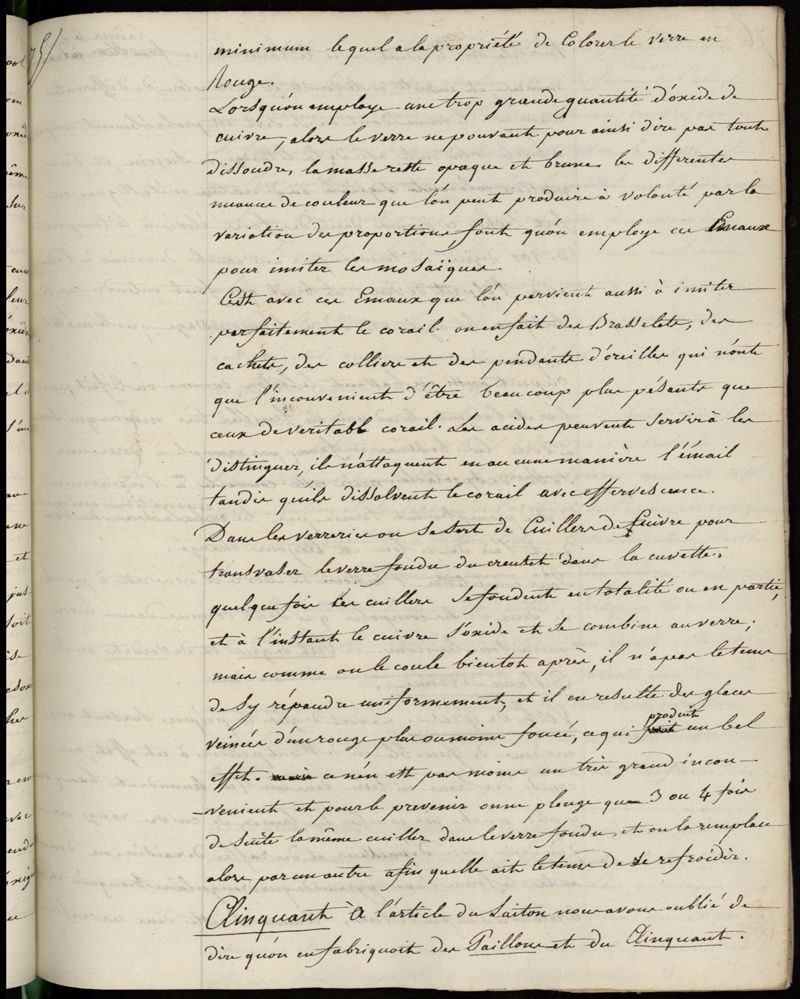 75/
minimum lequel a la propriété de Colorer le verre en
Rouge.
Lorsqu'on employe une trop grande quantité d'oxide de
cuivre, alors le verre ne pouvant pour ainsi dire pas tout
dissoudre, la masse reste opaque et brune. les differentes
nuances de couleur que l'on peut produire à volonté par la
variation des proportions font qu'on employe ces Emaux
pour imiter les mosaïques.
C'est avec ces Emaux que l'on parvient aussi à imiter
parfaitement le corail. on en fait des Brasselets, des
cachets, des colliers et des pendants d'oreilles qui n'ont
que l'inconvenient d'être beaucoup plus pésants que
ceux de veritable corail. Les acides peuvent servir à les
distinguer, ils n'attaquent en aucune manière l'émail
tandis qu'ils dissolvent le corail avec effervescence.
Dans les verreries on se sert de Cuillers de Cuivre pour
transvaser le verre fondu du creuset dans la cuvette,
quelquefois les cuillers se fondent en totalité ou en partie,
et à l'instant le cuivre s'oxide et se combine au verre;
mais comme on le coule bientot après, il n'a pas le tems
de s'y répandre uniformement, et il en resulte des glaces
veinées d'un rouge plus ou moins foncé, ce qui produit un bel
effet. ce n'en est pas moins un très grand incon-
venient et pour le prevenir on ne plonge que 3 ou 4 fois
de suite la même cuiller dans le verre fondu, et on la remplace
alors par un autre afin quelle ait le tems de se refroidir.
Clinquant À l'article du Laiton nous avons oublié de
dire qu'on en fabriquoit des Paillons et du Clinquant.